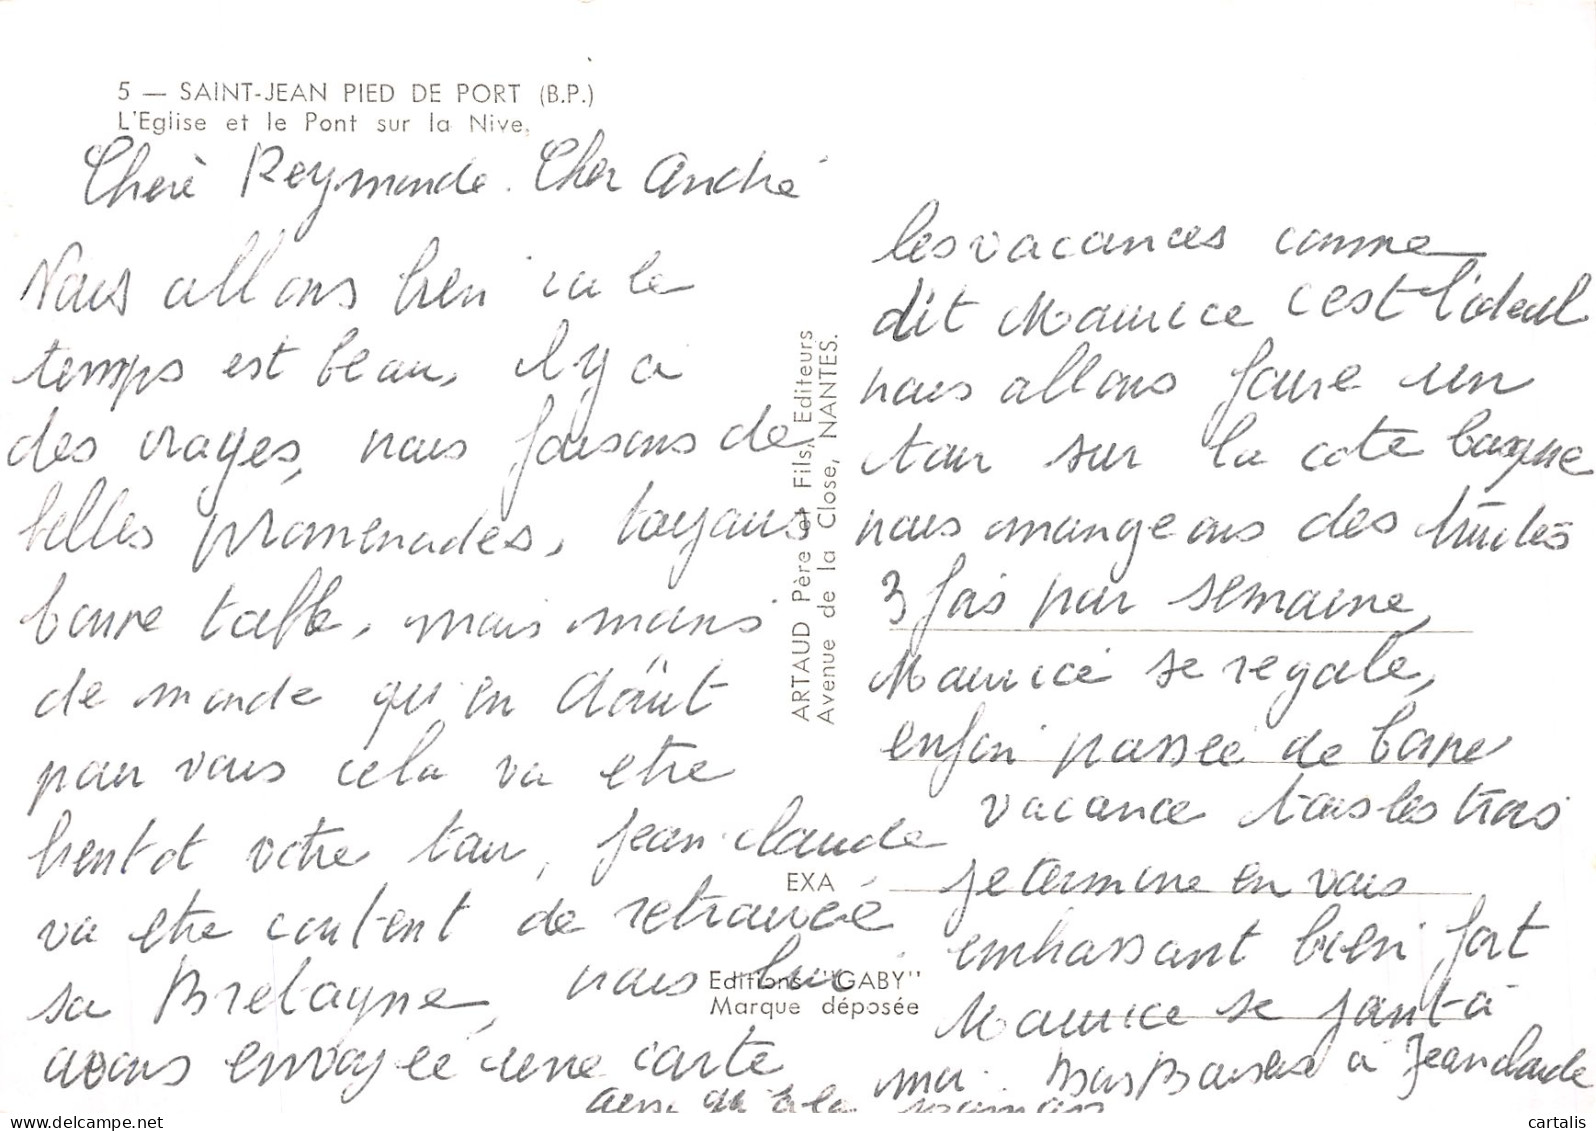 5 — SAINT-JEAN PIED DE PORT (B.P.)
L'Eglise et le Pont sur la Nive.
Cherè Reymonde. Cher André
Nous allons bien ici le
temps est beau, il y a
des orages, nous faisons de
belles promenades, toujours
bonne table, mais moins
de monde qu'en Août
pour vous cela va etre
bientot votre tour, jean-claude
va etre content de retrouvée
sa Bretagne, nous lui
avons envoyée une carte
ainsi qu'a la maman
les vacances comme
dit Maurice c'est l'idéal
nous allons faire un
tour sur la cote basque
nous mangeons des truites
3 fois par semaine,
Maurice se regale,
enfin passée de bonne
vacance tous les trois
je termine en vous
embrassant bien fort
Maurice se joint à
moi. Bons Baisers à Jean claude
ARTAUD Père et Fils, Editeurs
Avenue de la Close, NANTES.
EXA
Editions "GABY"
Marque déposée
www.delcampe.net
cartalis